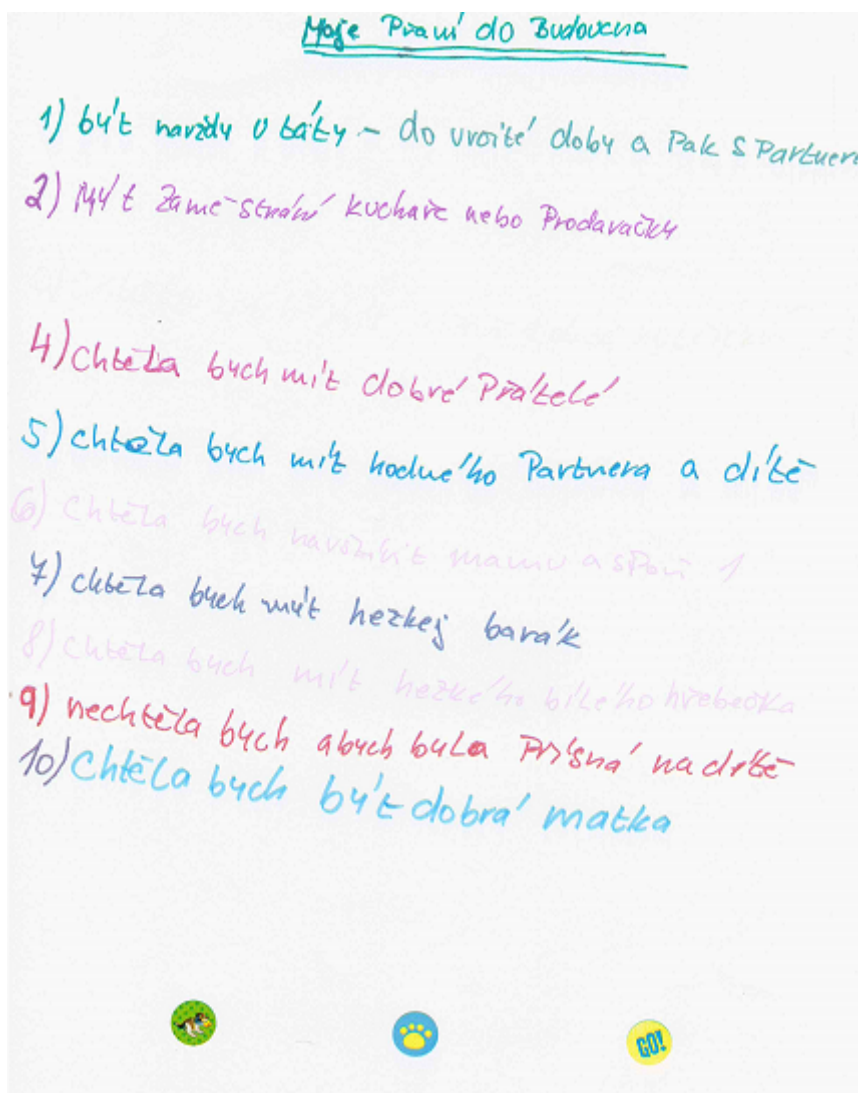 Moje Praní do Budoucna
1) být navždy u táty - do určité doby a Pak s Partner
2) Mýt Zaměstnání kuchaře nebo Prodavačky
4) chtěla bych mít dobré Prátelé
5) chtěla bych mít hodného Partnera a dítě
6) Chtěla bych navštívit mamu a 1
7) chtěla bych mýt hezkej barák
8) Chtěla bych mít hezkého bílého hřebečka
9) nechtěla bych abych byla Prísná na dítě
10) Chtěla bych být dobrá matka
GO!